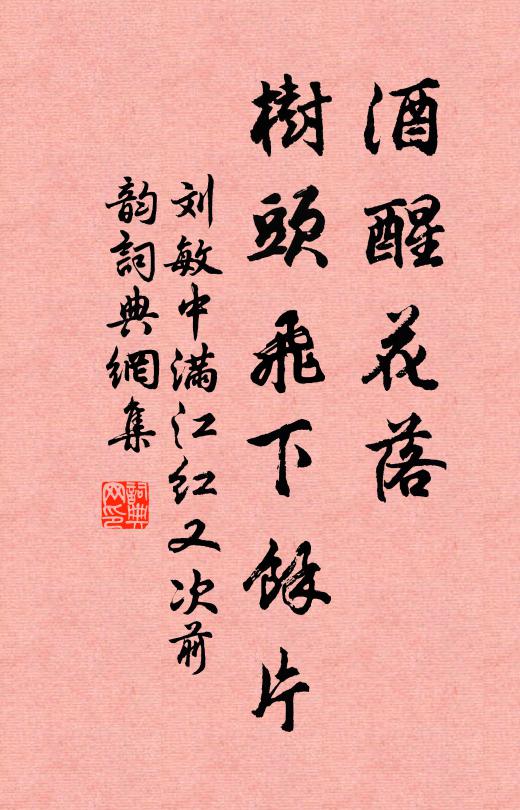 酒醒花落
樹頭飛下餘片
刘敏中满江红又次前
韵詞典網集
詞典
网印